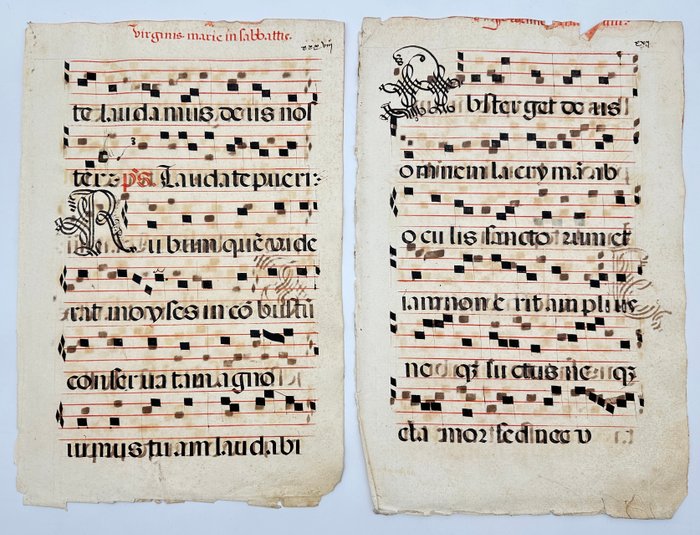 virginis marie in sabbatis.
te laudamus, deus nos
ter. ps. Laudate pueri:
Rubum quē vide
rat moyses in cōbustū
conseruatam agno
uimus tuam laudabi
Absterget deus
omnem lacrymā ab
oculis sanctorum et
iam non erit amplius
neq; luctus neq;
cla mor sed nec u